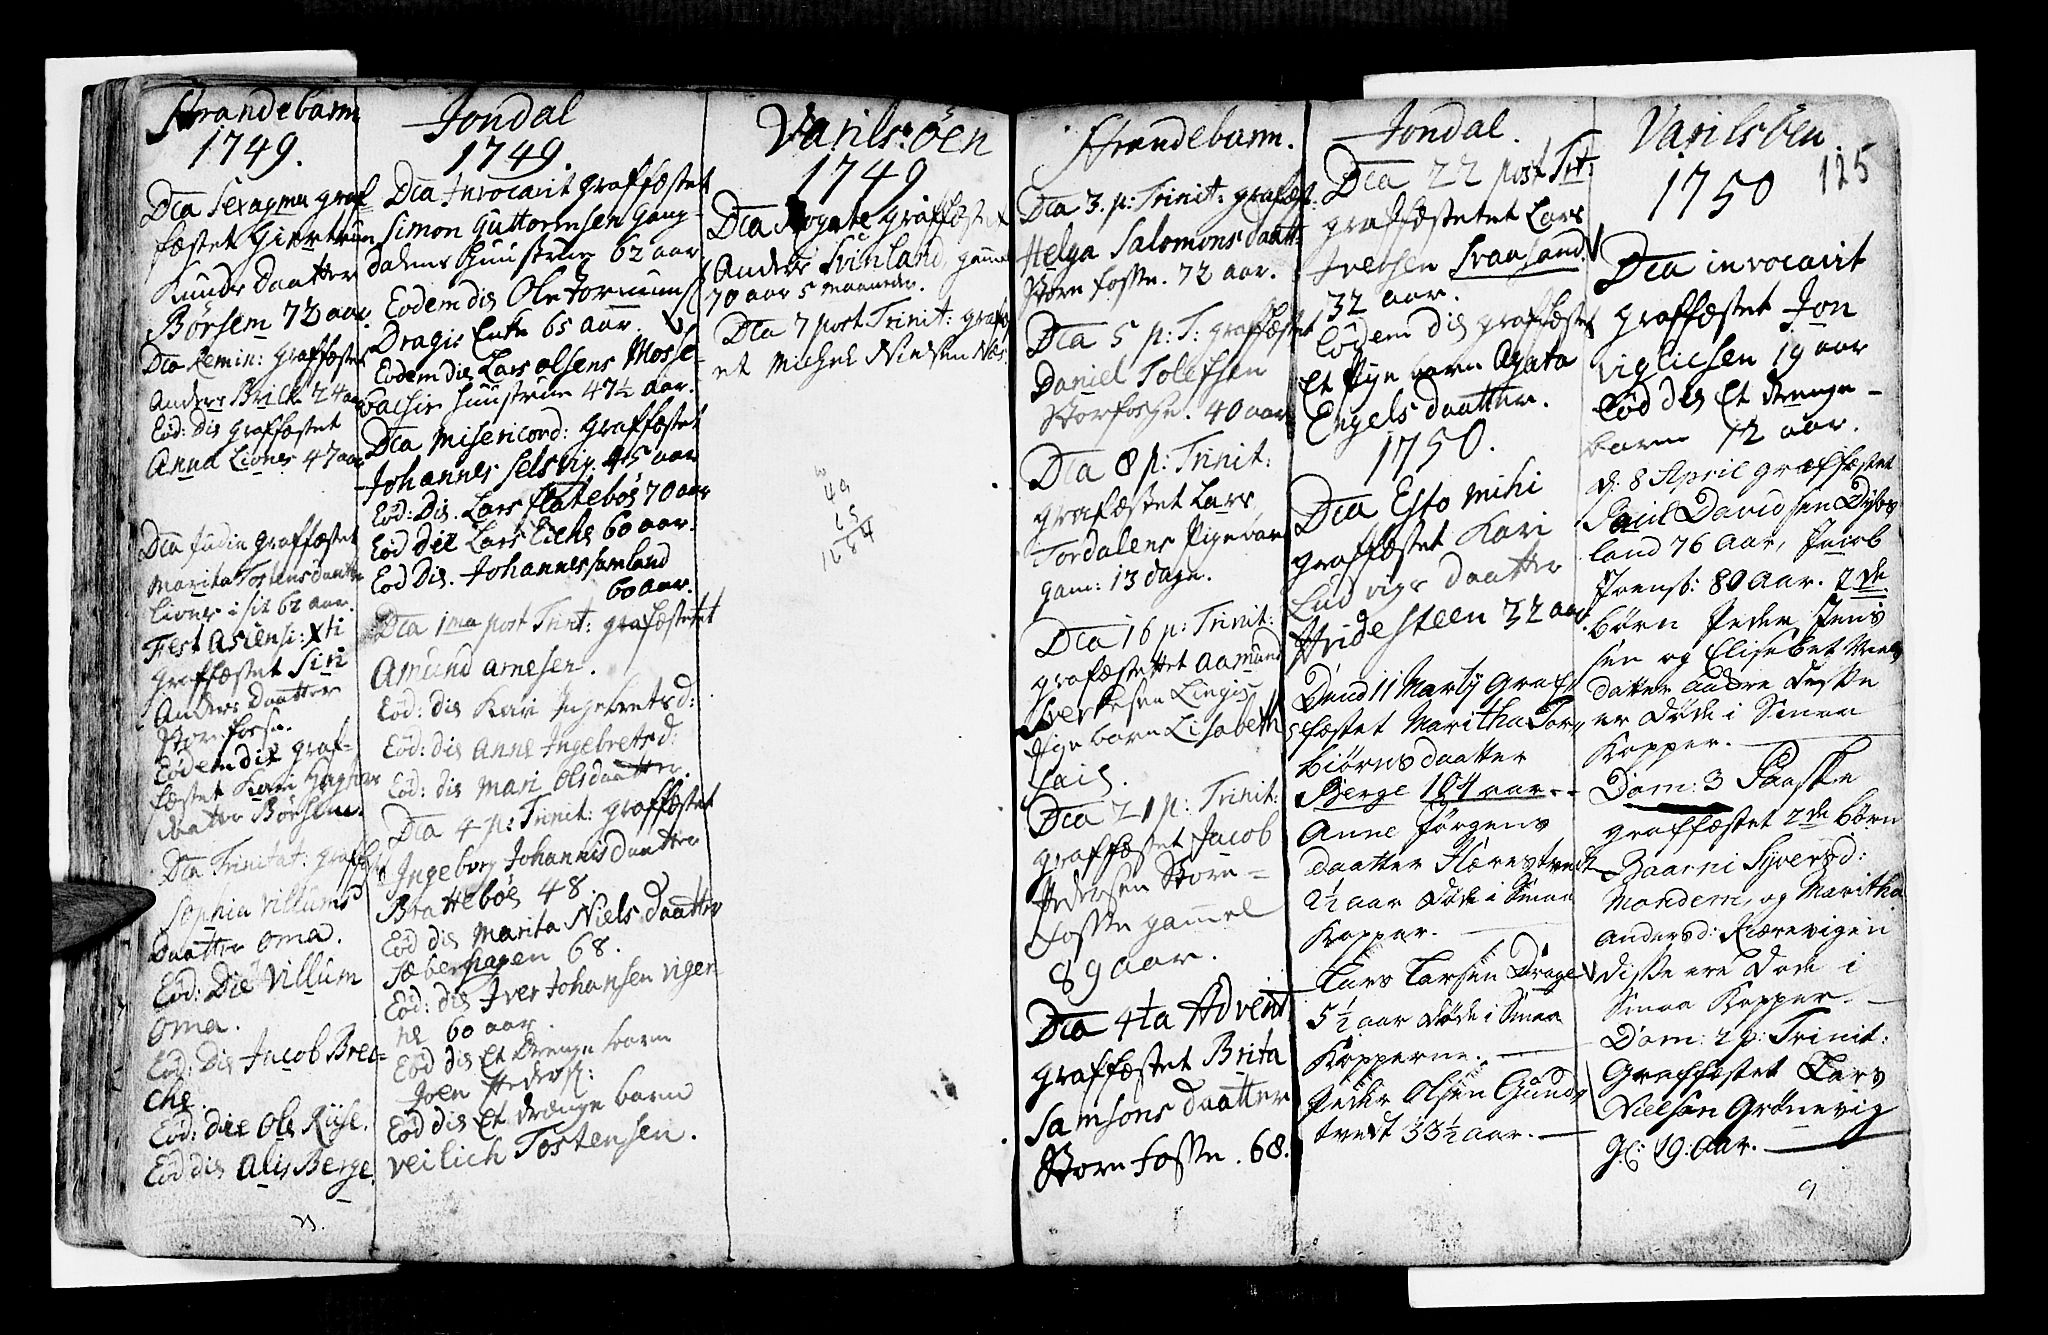 Strandebarm
1749.
Dca Sexagma graf-
fæstet Giertrun
Knuds Daatter
Børsem 72 aar.
Dca Remin: graffæstet
Anders Brike 24 aar
Eód: Die graffæstet
Anna Liones 47 aar
Dca Judica graffæstet
Marita Tostensdaatter
Liones i sit 62 aar.
Fest Asiensi: Xti
graffæstet Siri
Anders Daatter
Storefosse.
Eódem die graf-
fæstet Kari
daatter Børsem.
Dca Trinitat: graffæstet
Sophia Villums
Daatter Oma.
Eód: Die Villum
Oma.
Eód: Die Jacob Bre-
che.
Eód: die Ole Riise.
Eód die Alis Berge.
Jondal
1749.
Dca Invocavit graffæstet
Simon Guttormsen Gaug-
dalens Huustrue 62 aar
Eodem die Ole
Dragis Enke 65 aar.
Eodem die Lars Olsens Mosse-
bachis Huustrue 47½ aar.
Dca Misericord: graffæstet
Johannes Selsvig. 45 aar
Eód: Die. Lars Flatebøe 70 aar
Eód die Lars Eiche 60 aar.
Eód Die. Johannes Samland
60 aar.
Dca 1ma post Trint: grafæstetet
Amund Arnesen.
Eód: die Kari Ingebretsd:
Eód: die Anne Ingebretsd:
Eód: die Mari Olsdaatter.
Dca 4 p: Trinit: graffæstet
Ingeborg Johannisdaatter
Brattebøe 48.
Eód die Marita Niels Daatter
Sæberhagen 68.
Eód: die Iver Johansen Vigen
ne 60 aar.
Eód die Et Drenge barn
Joen
Eód die Et drænge barn
Veilich Tostensen.
Varils: Øen
1749
Dca Rogate graffæstet
Anders Svinland, gamel
70 aar 5 maaneder.
Dca 7 post Trinit: graffæst
et Michel Nielsen Næs
49
65
1684
Strandebarm.
Dca 3. p: Trinit: grafæst.
Helga Salomonsdaatt:
Store fosse. 72 aar.
Dca 5 p: T: graffæstet
Daniel Tolefsen
Storfosse. 40 aar
Dca 8 p: Trinit:
grafæstet Lars
Tordalens Pigebarn
gam: 13 dage.
Dca 16 p: Trinit:
grafæstettet Aamund
Sverkesen Lingis
Pige barn Lisabeth
Dca 21 p: Trinit:
graffæstet Jacob
Pedersen Store-
fosse gammel
89 aar.
Dca 4ta Advent
graffæstet Brita
Samsons Daatter
Store fosse. 68.
Jondal.
Dca 22 post Trt:
graffæstetet Lars
Iversen Svaasand
32 aar.
Eódem die graffæstet
Et Pige barn Agata
Engels daatter.
1750.
Dca Esto mihi
graffæstet Kari
Ludvigs Daatter
Hvidesteen 32 aar.
Dend 11 Marty Graf-
fæstet Maritha Tor-
biørnsdaatter
Berge 104 aar--
Anne Jørgens
daatter Flærestvedt
2½ aar døde i Smaa
Kopper.
Lars Larsen Drage
5½ aar døde i Smaa
Kopperne.
Peder Olsen Gunde
tvedt 33½ aar.
Varilsøen
125
1750
Dca invocavit
graffæstet Jon
Viglicsen 19 aar
Eód die Et drenge-
barn 12 aar.
d: 8 April graffæstet
Paul Davidsen Dybs
land 76 Aar, Jacob
80 Aar. 2de
børn Peder Jens
sen og Elisebet
datter Aadre disse
er døde i Smaa
Kopper.
Dom: 3 Paaske
graffæstet 2de børn
Baarni Syversd:
Mondem, og Maritha
Andersd: Kiærevigen
disse ere døde i
Smaa Kopper.
Dom: 2 p: Trinit:
Graffæstet Lars
Nielsen Grønevig
gl: 19: Aar.